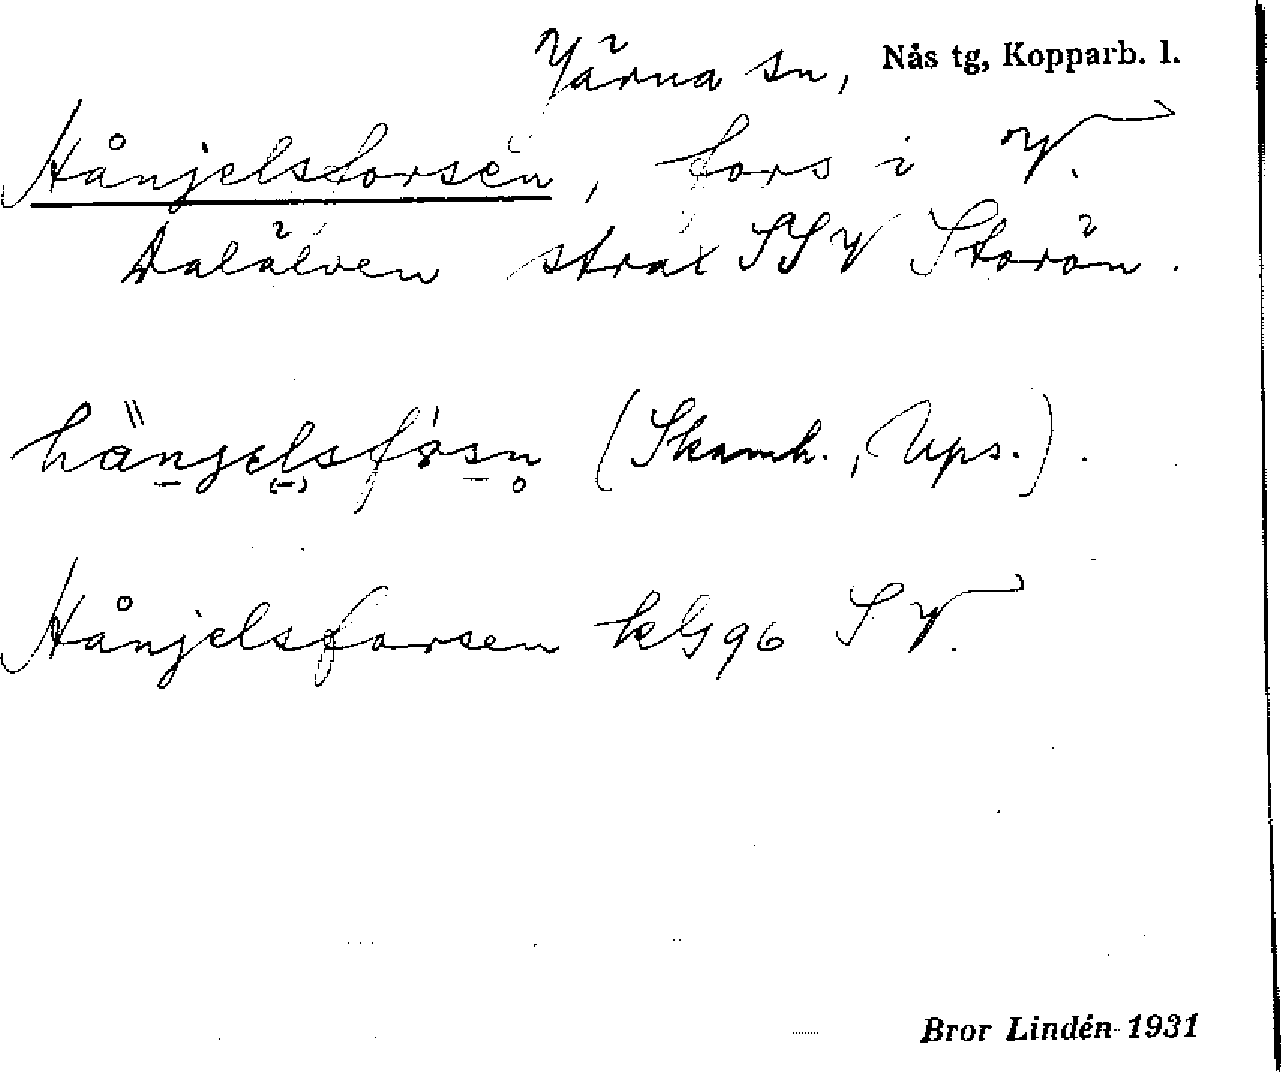 Järna sn, Nås tg, Kopparb. l.
Hånjelsforsen, fors i V.
Dalälven strax SSV Storön.
hänjelsfösn (Skamh., Ups.).
Hånjelsforsen kG96 SV.
Bror Lindén 1931